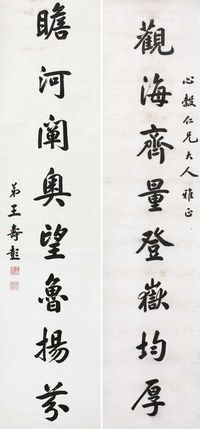 心穀仁兄大人雅正
觀海齊量登嶽均厚
瞻河闡奧望魯揚芬
弟王壽彭